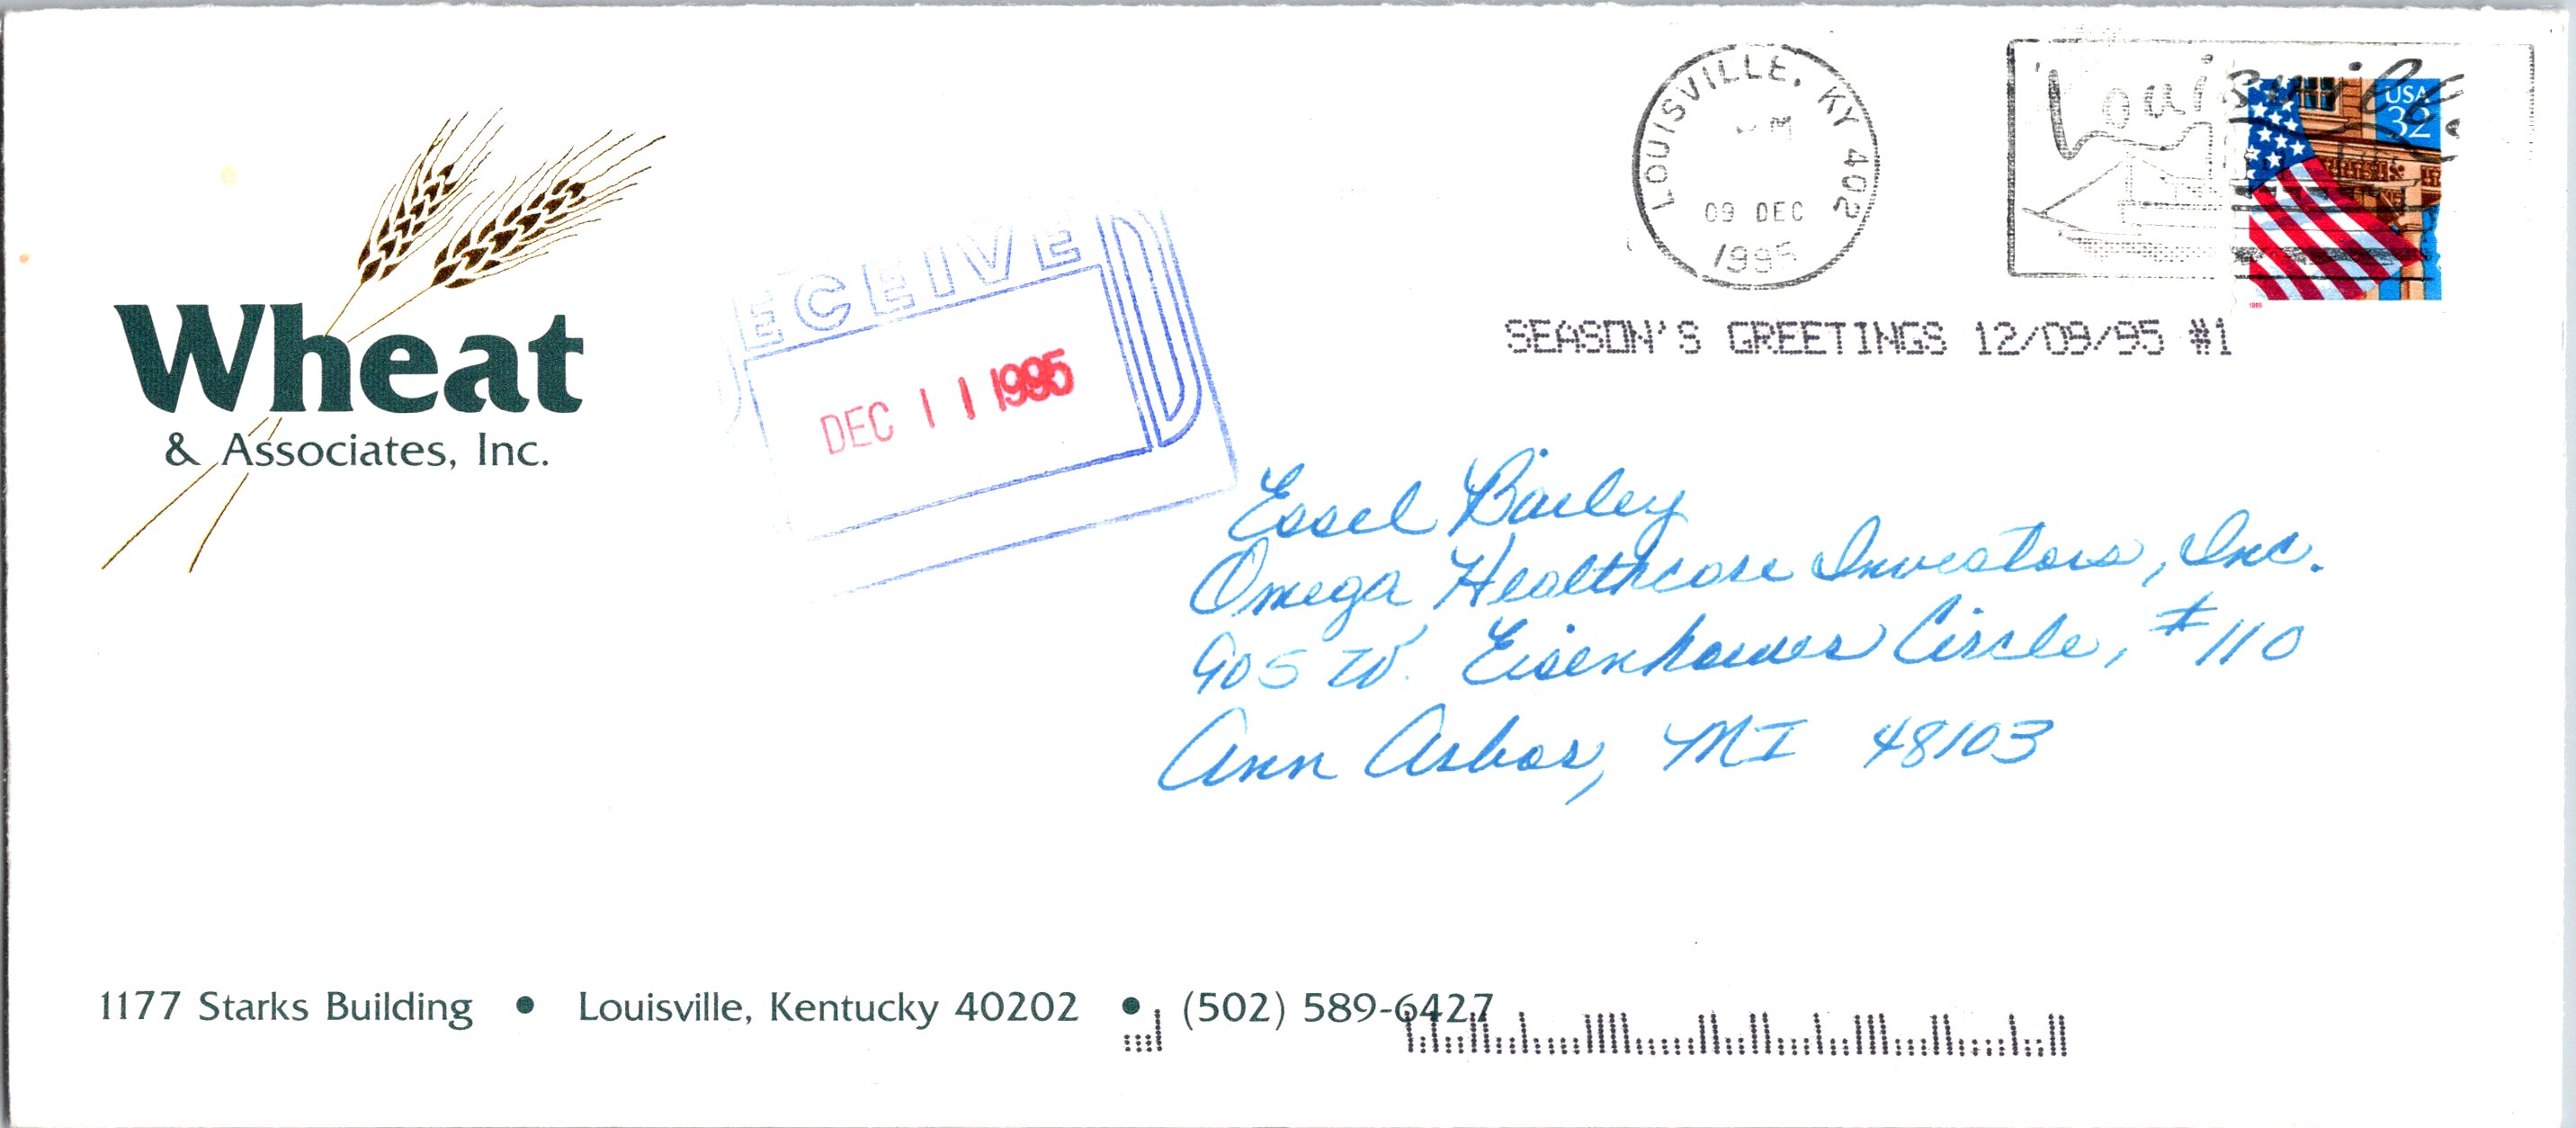 Wheat
& Associates, Inc.
RECEIVED
DEC 11 1995
LOUISVILLE, KY 402
PM
09 DEC
1995
Louisville
USA
32
1995
SEASON'S GREETINGS 12/09/95 #1
Essel Bailey
Omega Healthcare Investors, Inc.
905 W. Eisenhower Circle, #110
Ann Arbor, MI 48103
1177 Starks Building • Louisville, Kentucky 40202 • (502) 589-6427